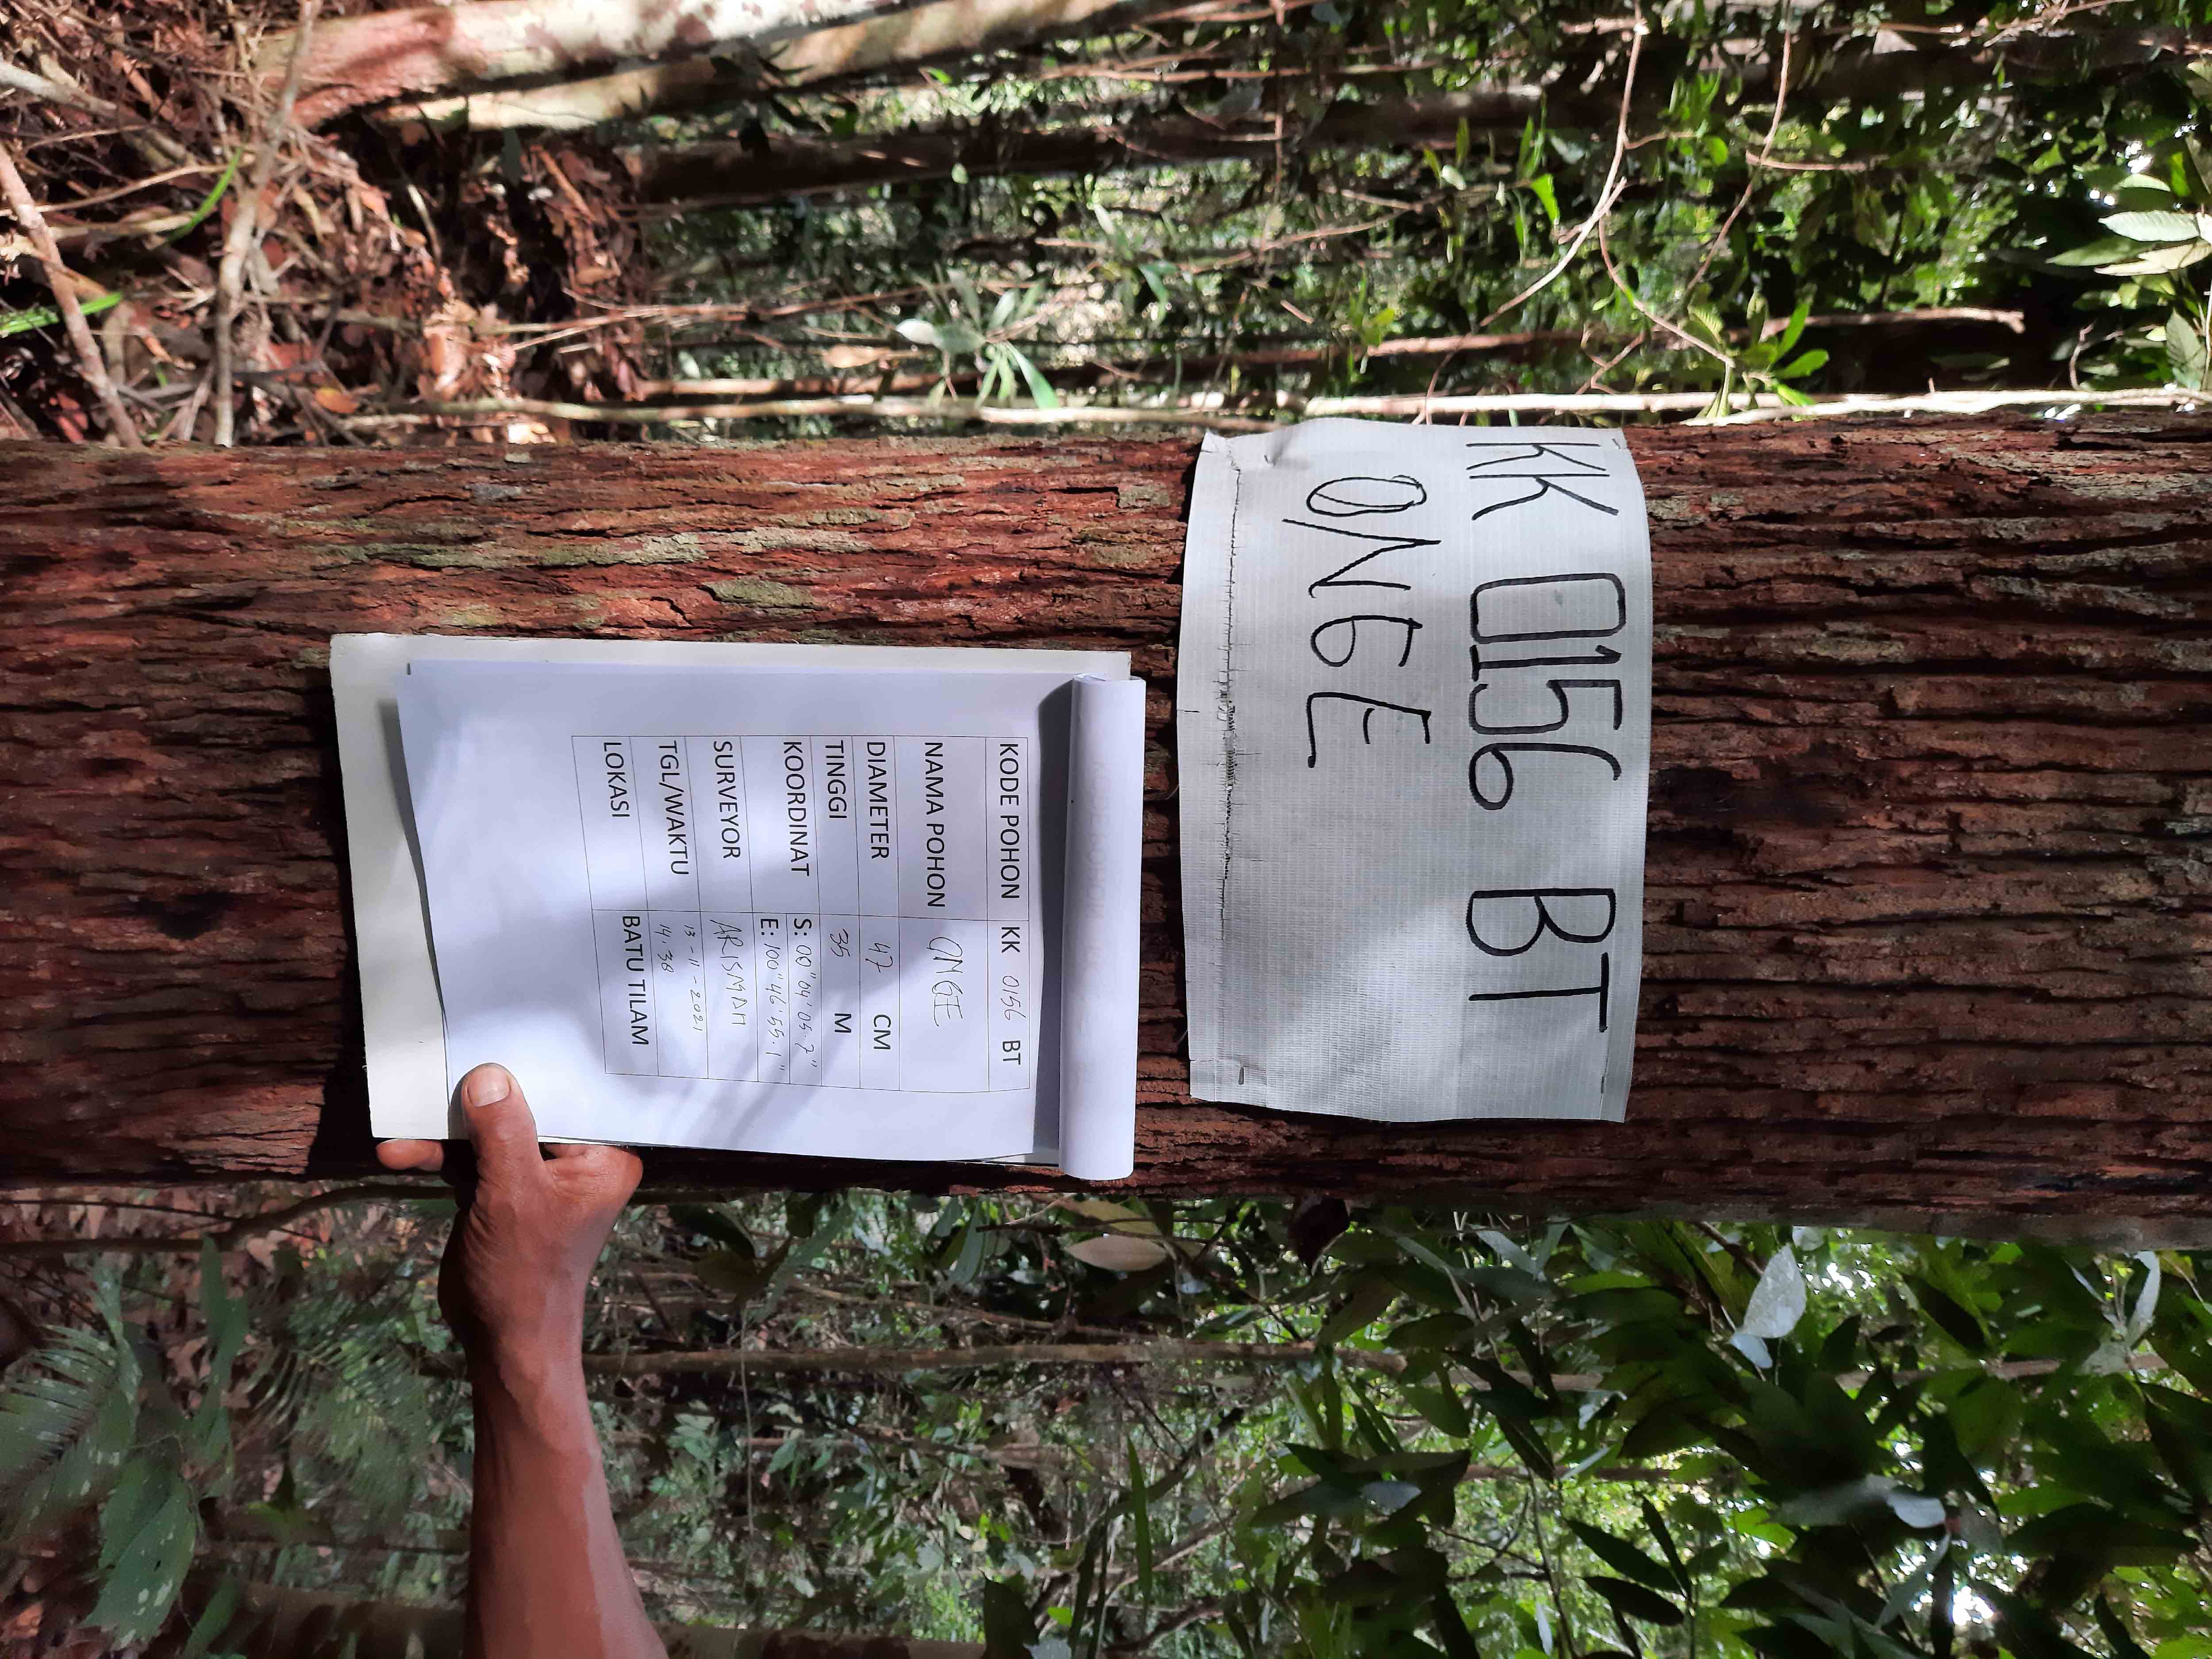 KK 0156 BT
ONGE
KODE POHON KK 0156 BT
NAMA POHON ONGE
DIAMETER 47 CM
TINGGI 35 M
KOORDINAT S: 00" 04' 05.7"
E: 100" 46' 55.1"
SURVEYOR ARISMAN
TGL/WAKTU 13-11-2021
14.38
LOKASI BATU TILAM